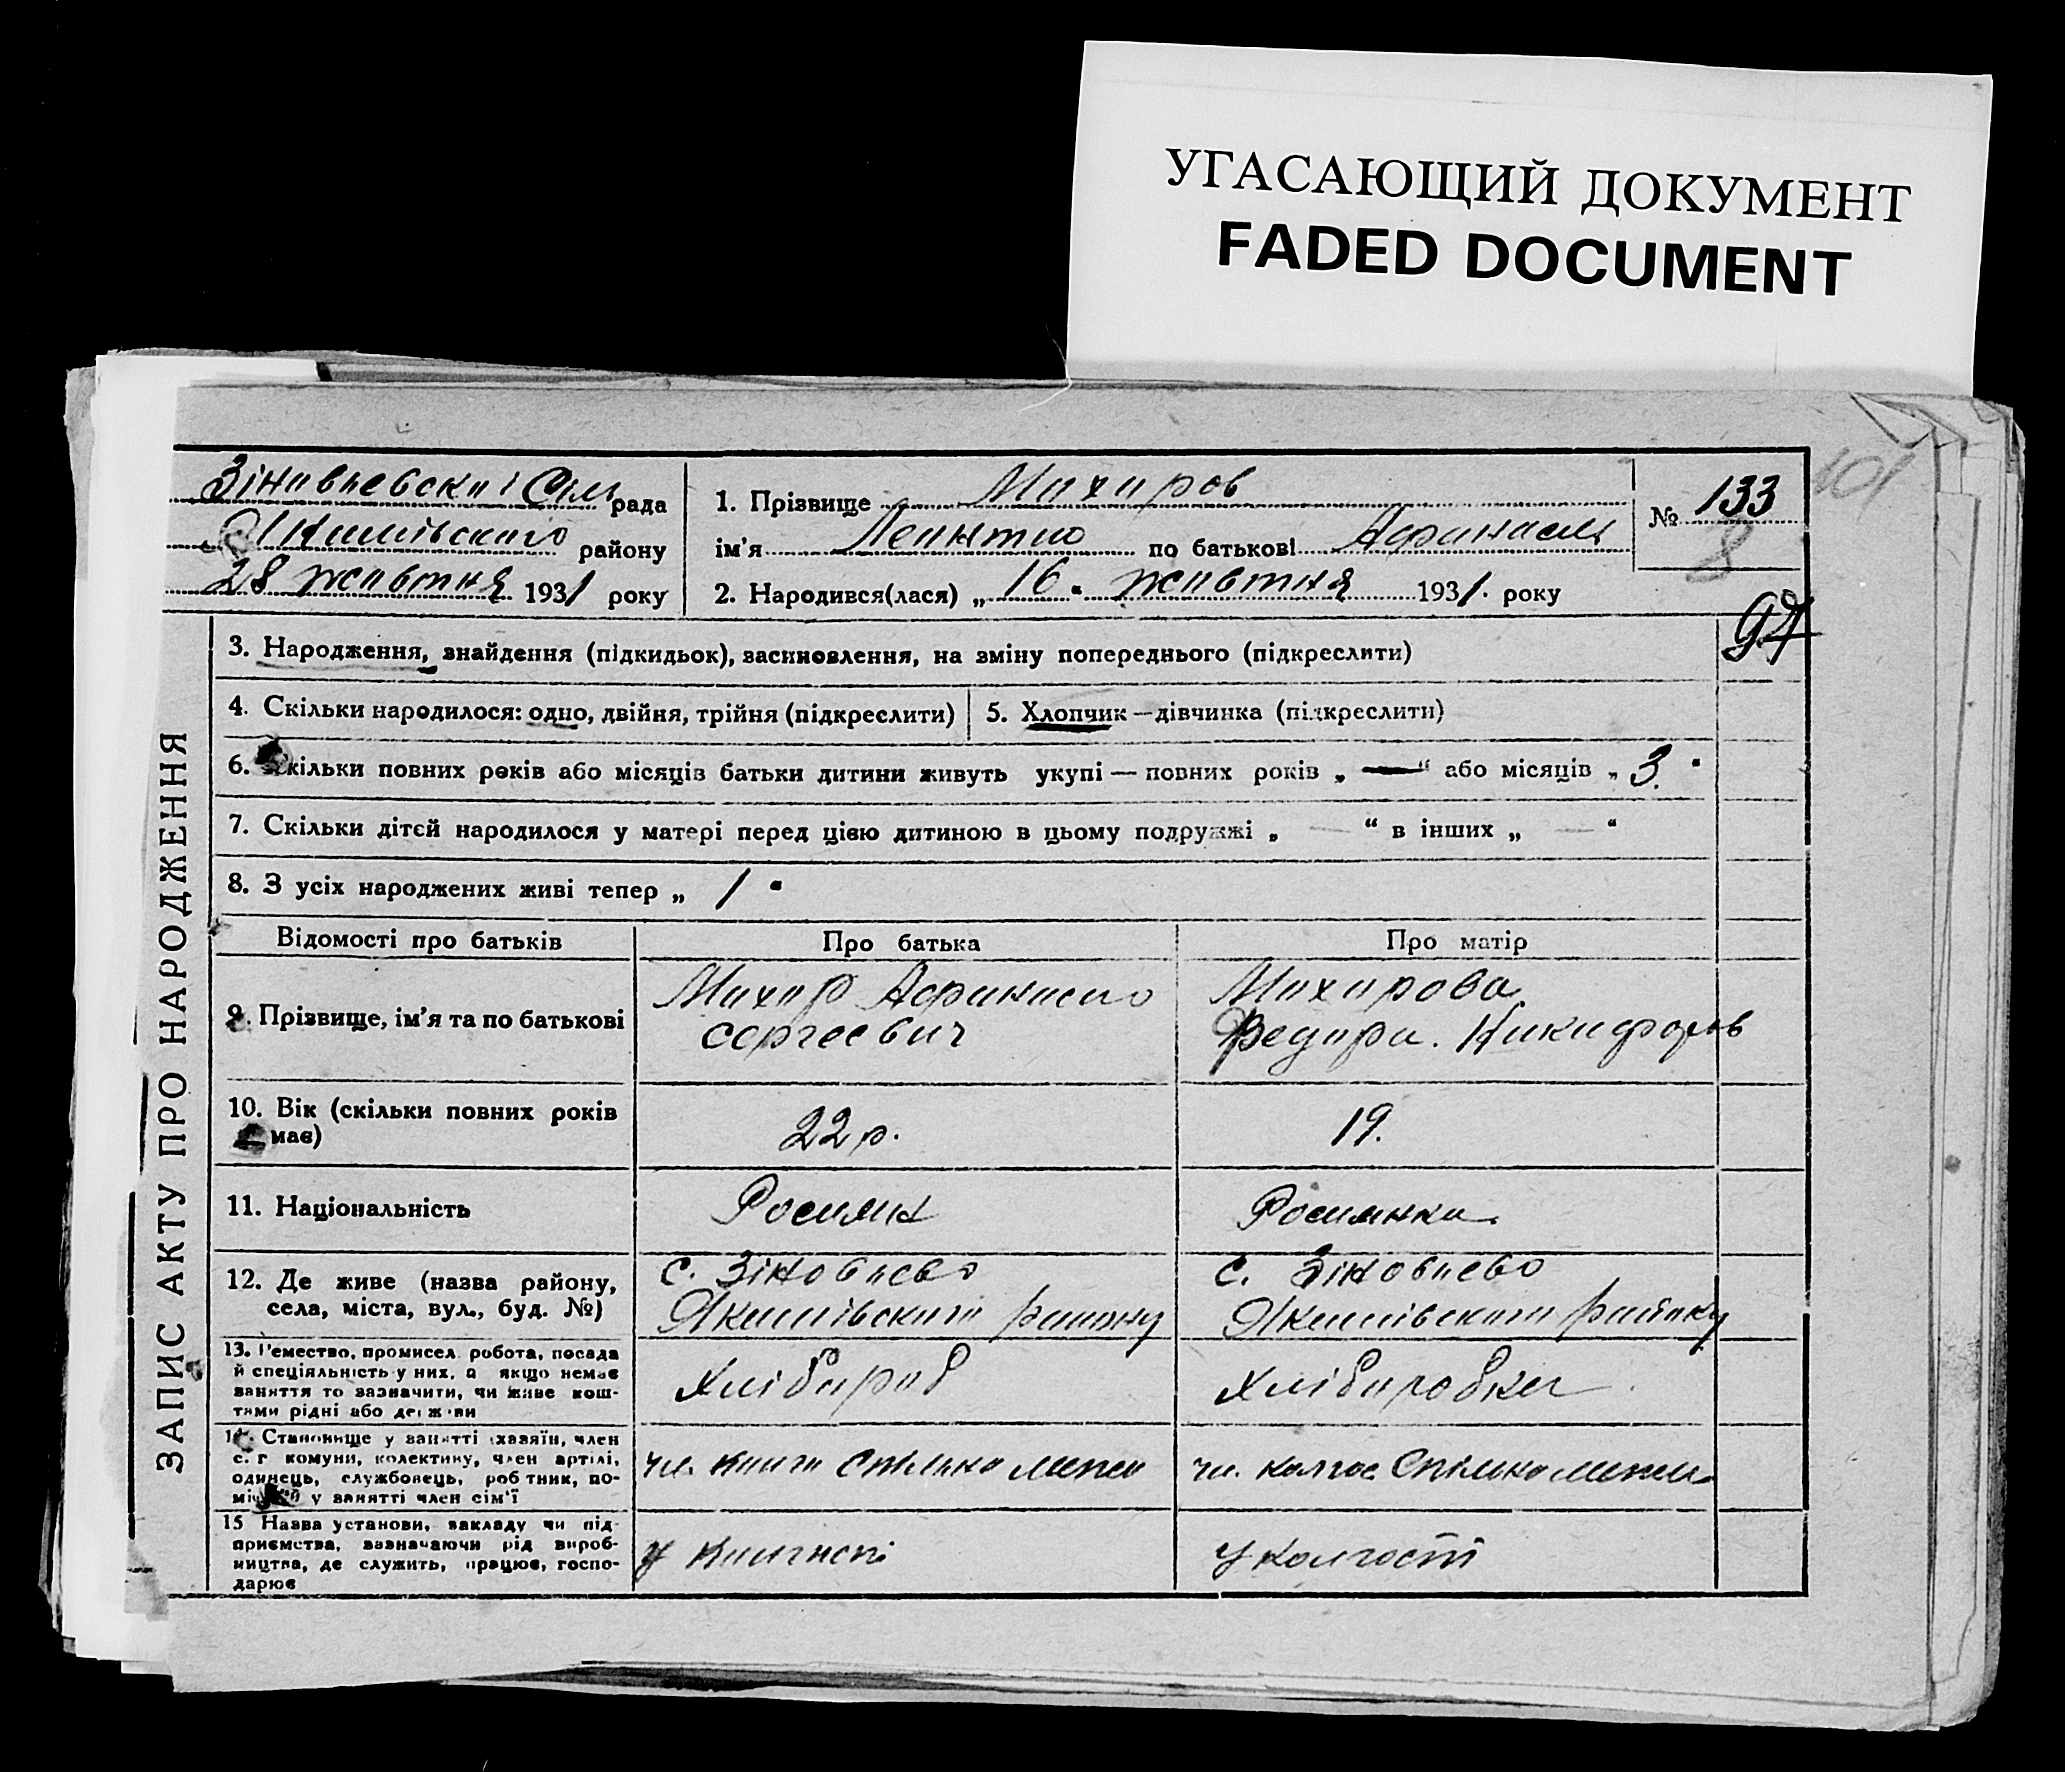 УГАСАЮЩИЙ ДОКУМЕНТ
FADED DOCUMENT
ЗАПИС АКТУ ПРО НАРОДЖЕННЯ
Зіновьевської Сіль рада
Якимівського району
28 жовтня 1931 року
1. Прізвище Махиров
ім'я Леонтио по батькові Афанасьь
2. Народився(лася) „16" жовтня 1931. року
№ 133
8
101
3. Народження, знайдення (підкидьок), засиновлення, на зміну попереднього (підкреслити)
4. Скільки народилося: одно, двійня, трійня (підкреслити)
5. Хлопчик—дівчинка (підкреслити)
6. Скільки повних років або місяців батьки дитини живуть укупі — повних років „ — " або місяців „ 3. "
7. Скільки дітей народилося у матері перед цією дитиною в цьому подружжі „ — " в інших „ — "
8. З усіх народжених живі тепер „ 1 "
Відомості про батьків
Про батька
Про матір
9. Прізвище, ім'я та по батькові
Махир Афанасио
Сергеевич
Махирова
Федора. Никифоров
10. Вік (скільки повних років
має)
22 р.
19.
11. Національність
Росиян
Росиянка
12. Де живе (назва району,
села, міста, вул., буд. №)
с. Зіновиево
Якимівського району
с. Зіновиево
Якимівського району
13. Ремество, промисел робота, посада
й спеціяльність у них, а якщо немає
заняття то зазначити, чи живе кош-
тами рідні або держави
Хлібороб
Хліборобка
14. Становище у занятті (хазяїн, член
с. г комуни, колективу, член артілі,
одинець, службовець, робітник, по-
мічний у занятті член сім'ї
чл. колгосп Спільна
чл. колгос Спільна
15 Назва установи, закладу чи під-
приємства, зазначаючи рід вироб-
ництва, де служить, працює, госпо-
дарює
У колгоспі
У колгоспі